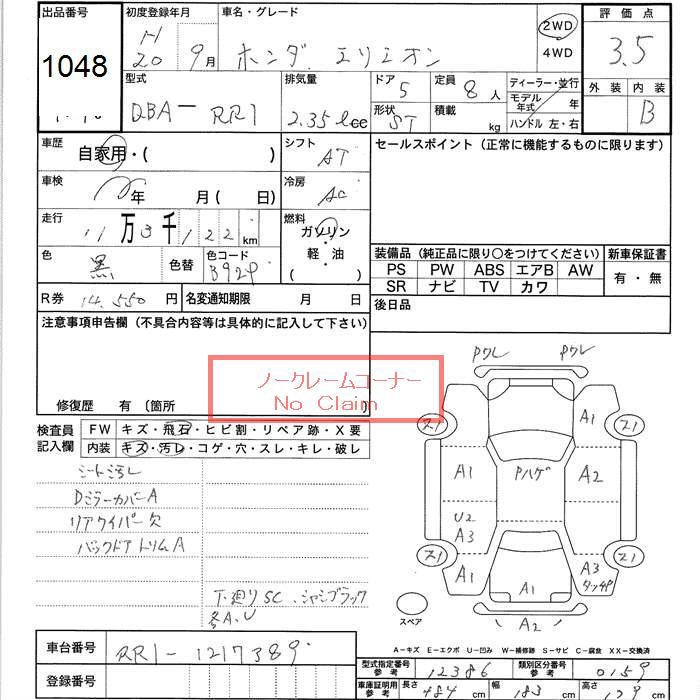 出品番号
1048
初度登録年月
H
20 9月
車名・グレード
ホンダ. エリシオン
2WD
4WD
評価点
3.5
外装 内装
B
型式
DBA- RR1
排気量
2.35lcc
ドア
5
形状
ST
定員
8人
積載
kg
ディーラー・並行
モデル年式 年
ハンドル 左・右
車歴
自家用・( )
シフト
AT
セールスポイント (正常に機能するものに限ります)
車検
年 月( 日)
冷房
AC
走行
11万3千122km
燃料
ガソリン
・
軽・油
( )
色
黒
色替
色コード
B92P
装備品 (純正品に限り○をつけてください)
PS PW ABS エアB AW
SR ナビ TV カワ
新車保証書
有・無
R券 14.550円
名変通知期限 月 日
後日品
注意事項申告欄 (不具合内容等は具体的に記入して下さい)
修復歴 有 〔箇所 〕
ノークレームコーナー
No Claim
検査員記入欄
FW キズ・飛石・ヒビ割・リペア跡・X要
内装 キズ・汚レ・コゲ・穴・スレ・キレ・破レ
シート汚レ
DミラーカバーA
リアワイパー欠
バックドアトリムA
下廻りSC.シャシブラック
多A.U
Pワレ Pワレ
A1
ス1 ス1
A1 Pハゲ A2
U2
A3
ス1 ス1
A1 A1 A3
タッチP
A2
スペア
A-キズ E-エクボ U-凹み W-補修跡 S-サビ C-腐食 XX-交換済
車台番号
RR1-1217389
登録番号
型式指定番号参考 12386
類別区分番号参考 0159
車庫証明用参考 長さ 484cm 幅 183cm 高さ 179cm